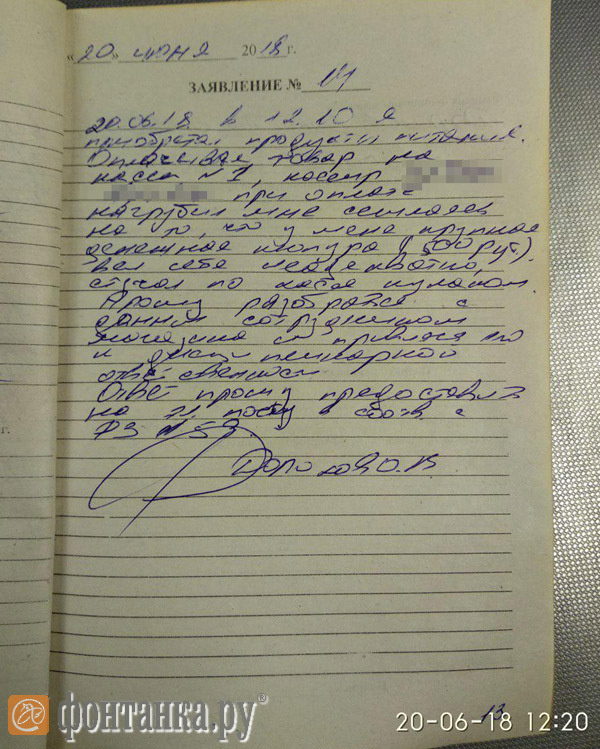 «20» июня 2018 г.
ЗАЯВЛЕНИЕ № 14
20.06.18 в 12.10 я
приобретал продукты питания.
Оплачивая товар на
кассе №1, кассир
при оплате
нагрубил мне ссылаясь
на то, что у меня крупная
денежная купюра (500 руб.).
Вел себя неадекватно,
стучал по кассе кулаком.
Прошу разобраться с
данным сотрудником
магазина и привлечь его
к дисциплинарной
ответственности
Ответ прошу предоставить
на эл. почту в соотв. с
ФЗ №59.
г.
13
фонтанка.ру®
20-06-18 12:20